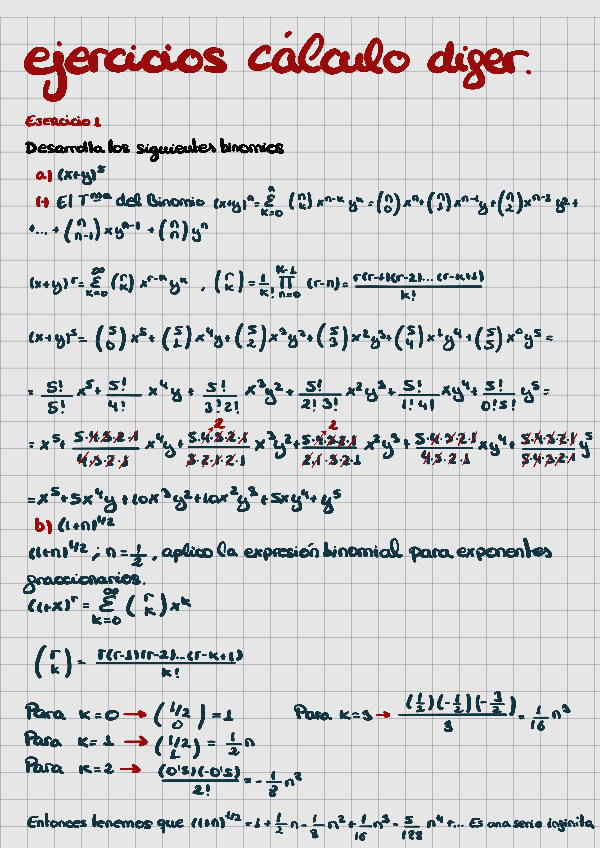 ejercicios cálculo difer.
Ejercicio 1
Desarrolla los siguientes binomios
a) (x+y)⁵
(→ El Tᵐᵃ del Binomio (x+y)ⁿ = Σₖ₌₀ⁿ (n k) xⁿ⁻ᵏ yᵏ = (n 0) xⁿ + (n 1) xⁿ⁻¹y + (n 2) xⁿ⁻² y² +
+... + (n n-1) xyⁿ⁻¹ + (n n) yⁿ
(x+y)ʳ = Σₖ₌₀^∞ (r k) xʳ⁻ᵏ yᵏ , (r k) = 1/k! ∏ₙ₌₀ᵏ⁻¹ (r-n) = r(r-1)(r-2)...(r-k+1) / k!
(x+y)⁵ = (5 0) x⁵ + (5 1) x⁴y + (5 2) x³y² + (5 3) x²y³ + (5 4) x¹y⁴ + (5 5) x⁰y⁵ =
= 5!/5! x⁵ + 5!/4! x⁴y + 5!/3!2! x³y² + 5!/2!3! x²y³ + 5!/1!4! xy⁴ + 5!/0!5! y⁵ =
= x⁵ + 5·4·3·2·1/4·3·2·1 x⁴y + 5·4·3·2·1/3·2·1·2·1 x³y² + 5·4·3·2·1/2·1·3·2·1 x²y³ + 5·4·3·2·1/4·3·2·1 xy⁴ + 5·4·3·2·1/5·4·3·2·1 y⁵
= x⁵ + 5x⁴y + 10x³y² + 10x²y³ + 5xy⁴ + y⁵
b) (1+n)^1/2
(1+n)^1/2 ; n = 1/2 , aplico la expresión binomial para exponentes
fraccionarios.
(1+x)ʳ = Σₖ₌₀^∞ (r k) xᵏ
(r k) = r(r-1)(r-2)...(r-k+1) / k!
Para k=0 → (1/2 0) = 1
Para k=1 → (1/2 1) = 1/2 n
Para k=2 → (0'5)(-0'5) / 2! = -1/8 n²
Para k=3 → (1/2)(-1/2)(-3/2) / 3 = 1/16 n³
Entonces tenemos que (1+n)^1/2 = 1 + 1/2 n - 1/8 n² + 1/16 n³ - 5/128 n⁴ +... Es una serie infinita